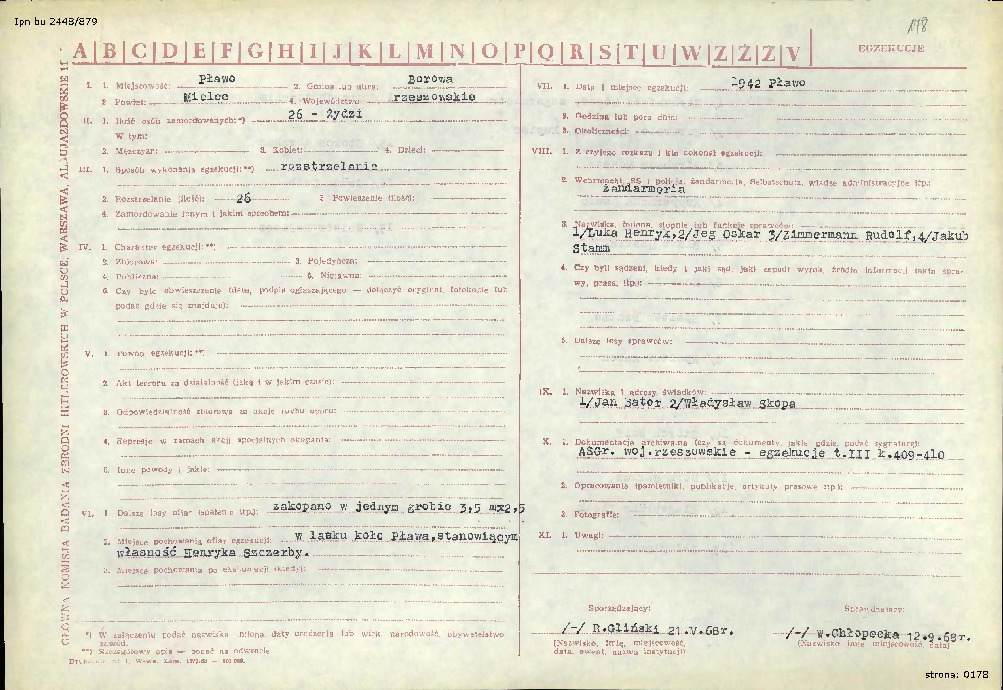 Ipn bu 2448/879
178
A|B|C|D|E|F|G|H|I|J|K|L|M|N|O|P|Q|R|S|T|U|W|Z|Ż|Ź|V
EGZEKUCJE
GŁÓWNA KOMISJA BADANIA ZBRODNI HITLEROWSKICH W POLSCE, WARSZAWA, AL. UJAZDOWSKIE 11
I. 1. Miejscowość: Pławo 2. Gmina lub ulica: Borowa
3. Powiat: Mielec 4. Województwo rzeszowskie
II. 1. Ilość osób zamordowanych:*) 26 - Żydzi
W tym:
2. Mężczyzn: 3. Kobiet: 4. Dzieci:
III. 1. Sposób wykonania egzekucji:**) rozstrzelanie
2. Rozstrzelanie (ilość): 26 3. Powieszenie (ilość):
4. Zamordowanie innym i jakim sposobem:
IV. 1. Charakter egzekucji:**)
2. Zbiorowa: 3. Pojedyńcza:
4. Publiczna: 5. Niejawna:
6. Czy było obwieszczenie (data, podpis ogłaszającego — dołączyć oryginał, fotokopię lub
podać gdzie się znajduje):
V. 1. Powód egzekucji:**)
2. Akt terroru za działalność (jaką i w jakim czasie):
3. Odpowiedzialność zbiorowa za akcje ruchu oporu:
4. Represje w ramach akcji specjalnych okupanta:
5. Inne powody i jakie:
VI. 1 Dalsze losy ofiar (spalenie itp.): zakopano w jednym grobie 3,5 mx2,5
2. Miejsce pochowania ofiar egzekucji: w lasku koło Pława,stanowiącym
własność Henryka Szczerby.
3. Miejsce pochowania po ekshumacji (kiedy):
*) W załączeniu podać nazwiska imiona, daty urodzenia lub wiek, narodowość, obywatelstwo
zawód.
**) Szczegółowy opis — podać na odwrocie
VII. 1. Data i miejsce egzekucji: 1942 Pławo
2. Godzina lub pora dnia:
3. Okoliczności:
VIII. 1. Z czyjego rozkazu i kto dokonał egzekucji:
2. Wehrmacht, SS i policja, żandarmeria, Selbstschutz, władze administracyjne itp.:
żandarmeria
3. Nazwiska, imiona, stopnie lub funkcje sprawców:
1/Łuka Henryk,2/Jeg Oskar 3/Zimmermann Rudolf,4/Jakub
Stamm
4. Czy byli sądzeni, kiedy i jaki sąd, jaki zapadł wyrok, źródło informacji (akta spra-
wy, prasa, itp.):
5. Dalsze losy sprawców:
IX. 1. Nazwiska i adresy świadków:
1/Jan Bator 2/Władysław Skopa
X. 1. Dokumentacja archiwalna (czy są dokumenty, jakie, gdzie, podać sygnaturę):
ASGr. woj.rzeszowskie - egzekucje t.III k.409-410
2. Opracowania (pamiętniki, publikacje, artykuły prasowe itp.):
3. Fotografie:
XI. 1. Uwagi:
Sporządzający: Sprawdzający:
/-/ R.Gliński 21.V.68r. /-/ W.Chłopecka 12.9.68r.
(Nazwisko, imię, miejscowość, (Nazwisko imię miejscowość, data)
data, ewent. nazwa instytucji)
strona: 0178